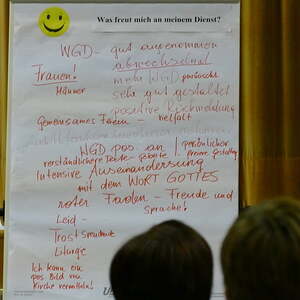 Was freut mich an meinem Dienst?
WGD - gut angenommen
abwechselnd
Frauen!
Männer
mehr WGD gewünscht
sehr gut gestaltet
positive Rückmeldung
Gemeinsames Feiern - Vielfalt
WGD pos. an!
persönlicher
verständlichere Texte - Gebete
Intensive Auseinandersetzung
mit dem WORT GOTTES
roter Faden - Freude und
Sprache!
Leid -
Trost
Liturgie
Ich kann ein
pos Bild von
Kirche vermitteln!